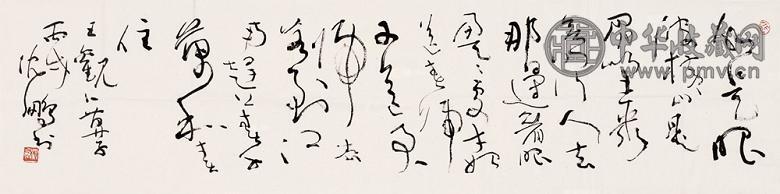 水是眼
波横山是
眉峰聚
欲问行人去
那邊眉眼
盈盈處才始
送春歸
又送君
歸去
若到江
南趕上春千
萬和春
住
王觀卜算子
丙戌沈鵬书
中华收藏网
www.pmv.cn